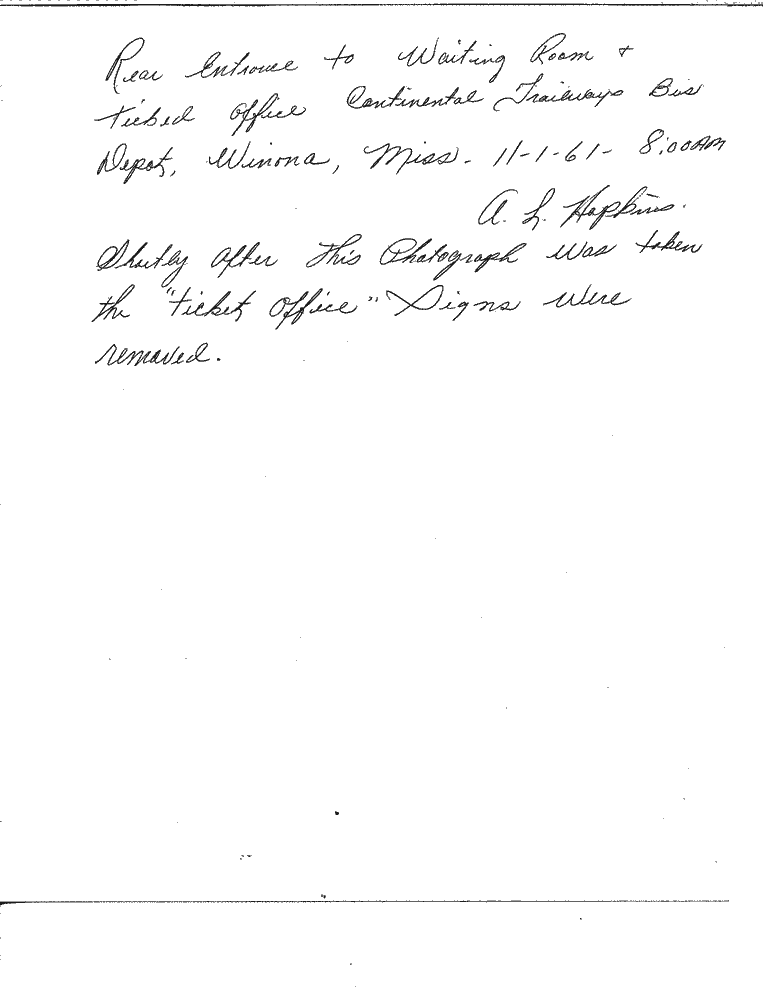 Rear Entrance to Waiting Room +
Ticked office Continental Trailways Bus
Depot, Winona, Miss. 11-1-61- 8:00AM
A. L. Hopkins.
Shortly after this Photograph was taken
the "ticket office" signs were
removed.